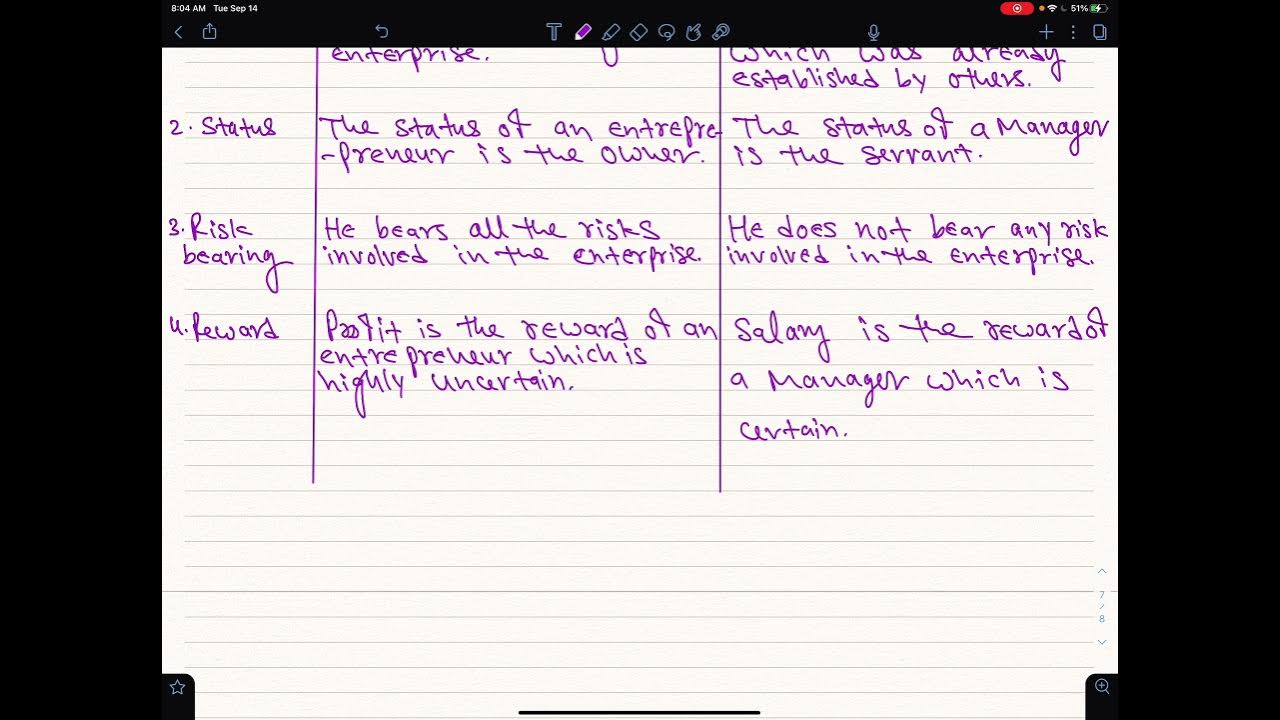 8:04 AM Tue Sep 14
51%
T
enterprise.
which was already
established by others.
2. Status
The status of an entrepre-
-preneur is the owner.
The status of a Manager
is the servant.
3. Risk
bearing
He bears all the risks
involved in the enterprise.
He does not bear any risk
involved in the enterprise.
4. Reward
Profit is the reward of an
entrepreneur which is
highly uncertain.
Salary is the reward of
a Manager which is
certain.
7
/
8